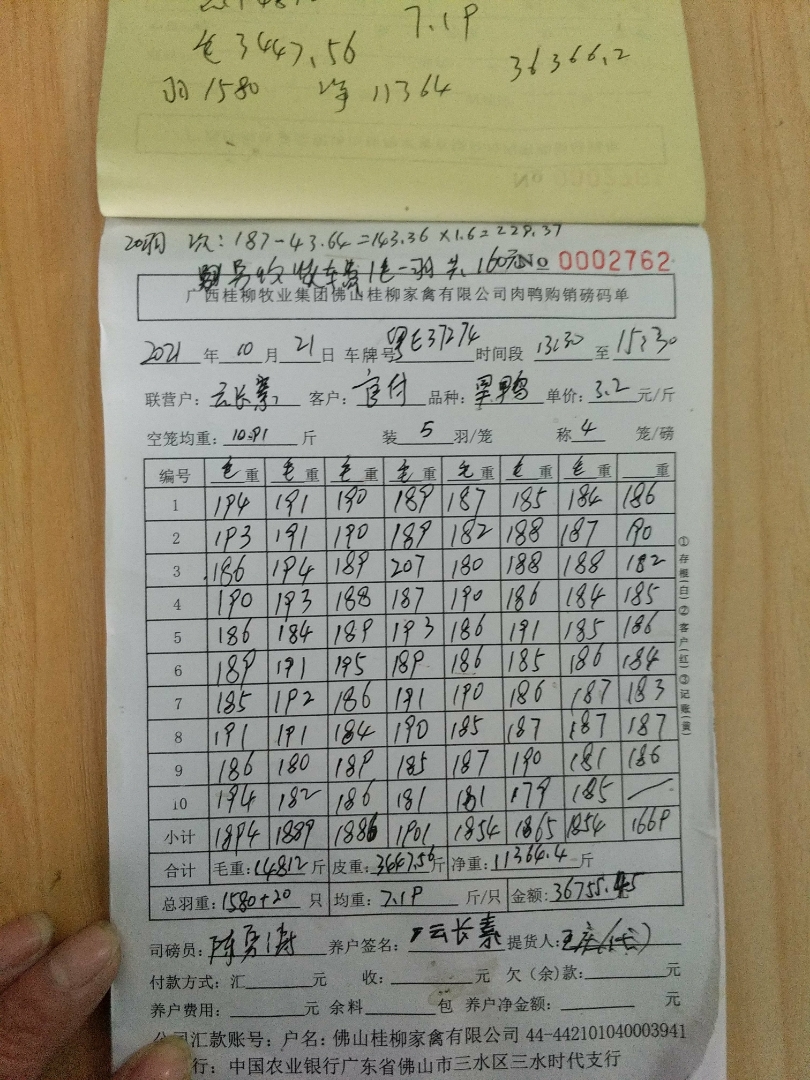 毛 3447.56 7.19
羽 1580 净 11364 36366.2
20羽 次: 187-43.64=143.36×1.6=229.37
No 0002762
广西桂柳牧业集团佛山桂柳家禽有限公司肉鸭购销磅码单
2021年10月21日 车牌号 粤E37274 时间段 13:30 至 15:30
联营户: 云长素 客户: 官付 品种: 单价: 3.2 元/斤
空笼均重: 10.91 斤 装 5 羽/笼 称 4 笼/磅
编号 毛重 毛重 毛重 毛重 毛重 毛重 毛重 重
1 194 191 190 189 187 185 184 186
2 193 191 190 189 182 188 187 190
3 186 194 189 207 180 188 188 182
4 190 193 188 187 190 186 184 185
5 186 184 189 193 186 191 185 186
6 189 191 195 189 186 185 186 184
7 185 192 186 191 190 186 187 183
8 191 191 184 190 185 187 187 187
9 186 180 189 185 187 190 181 186
10 194 182 186 181 181 179 185 —
小计 1894 1889 1886 1901 1854 1865 1854 1669
合计 毛重: 14812 斤 皮重: 3447.56 斤 净重: 11364.4 斤
总羽重: 1580+20 只 均重: 7.19 斤/只 金额: 36755.45
司磅员: 养户签名: 云长素 提货人:
付款方式: 汇 元 收: 元 欠(余)款: 元
养户费用: 元 余料 包 养户净金额: 元
公司汇款账号: 户名: 佛山桂柳家禽有限公司 44-442101040003941
行: 中国农业银行广东省佛山市三水区三水时代支行
①存根(白)②客户(红)③记账(黄)